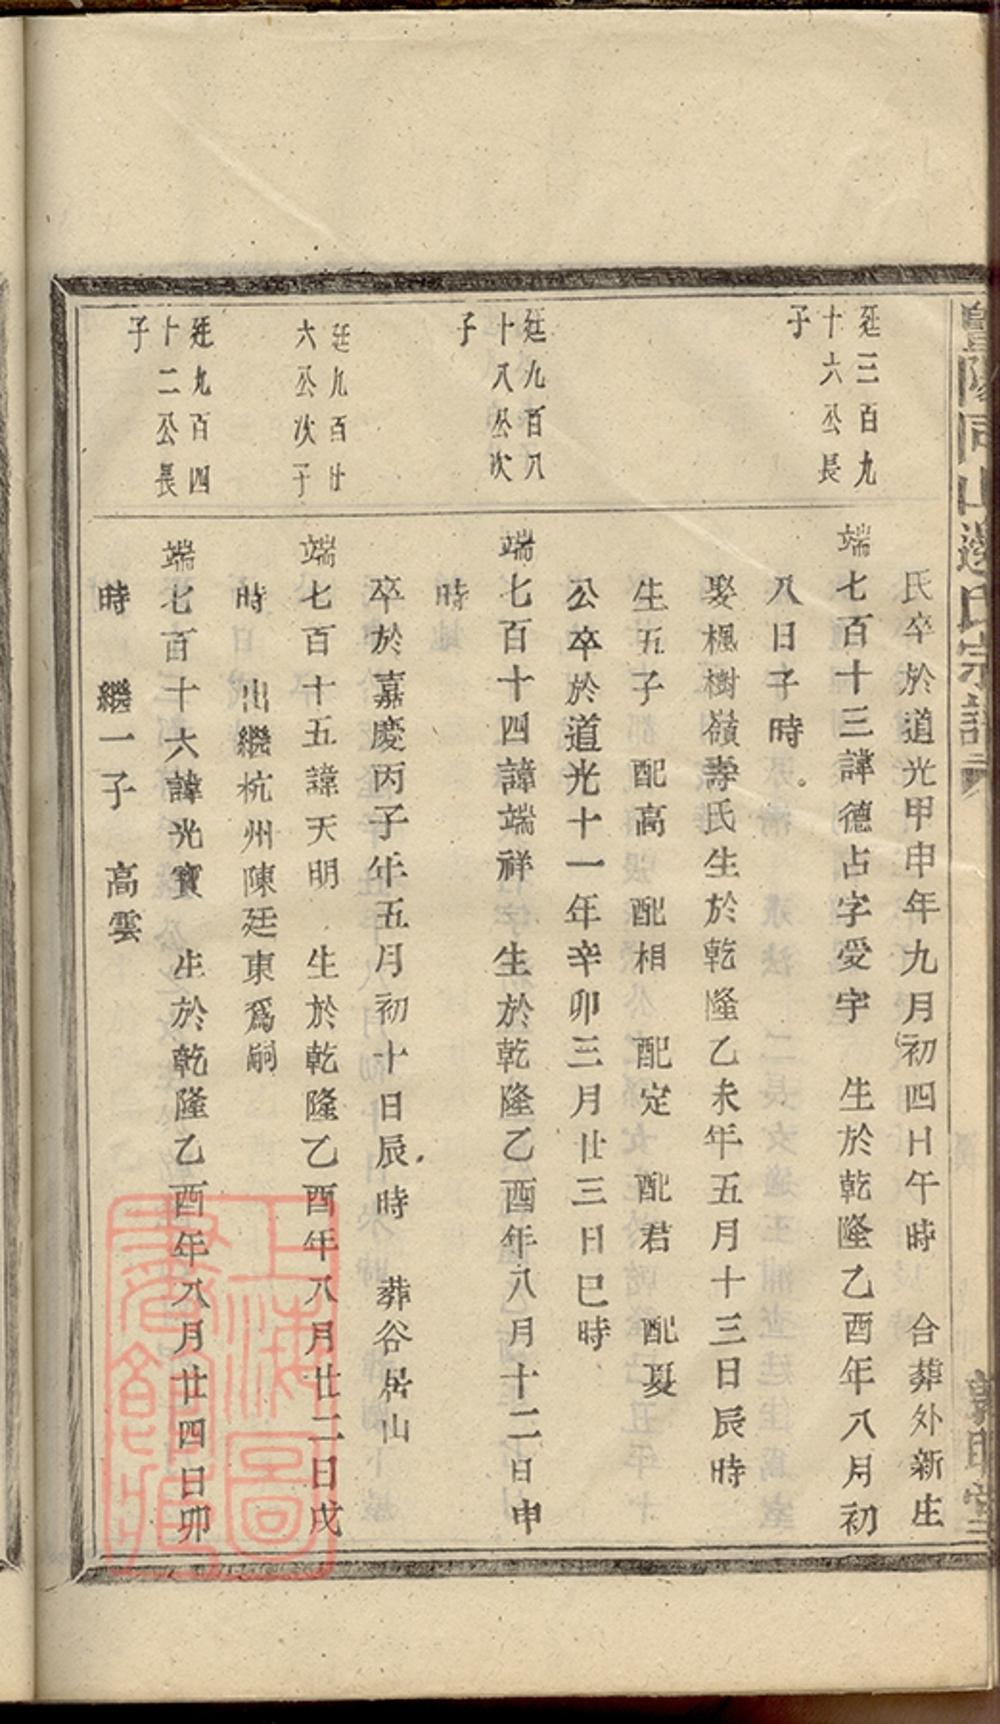 氏宗譜
氏卒於道光甲申年九月初四日午時 合葬外新庄
廷三百九
十六公長
子
端七百十三諱德占字受宇 生於乾隆乙酉年八月初
八日子時
娶楓樹嶺壽氏生於乾隆乙未年五月十三日辰時
生五子 配高 配相 配定 配君 配夏
公卒於道光十一年辛卯三月廿三日巳時
廷九百八
十八公次
子
端七百十四諱端祥 生於乾隆乙酉年八月十二日申
時
卒於嘉慶丙子年五月初十日辰時 葬谷居山
廷九百廿
六公次子
端七百十五諱天明 生於乾隆乙酉年八月廿二日戌
時 出繼杭州陳廷東爲嗣
廷九百四
十二公長
子
端七百十六諱光寶 生於乾隆乙酉年八月廿四日卯
時 繼一子 高雲
上海圖書館藏